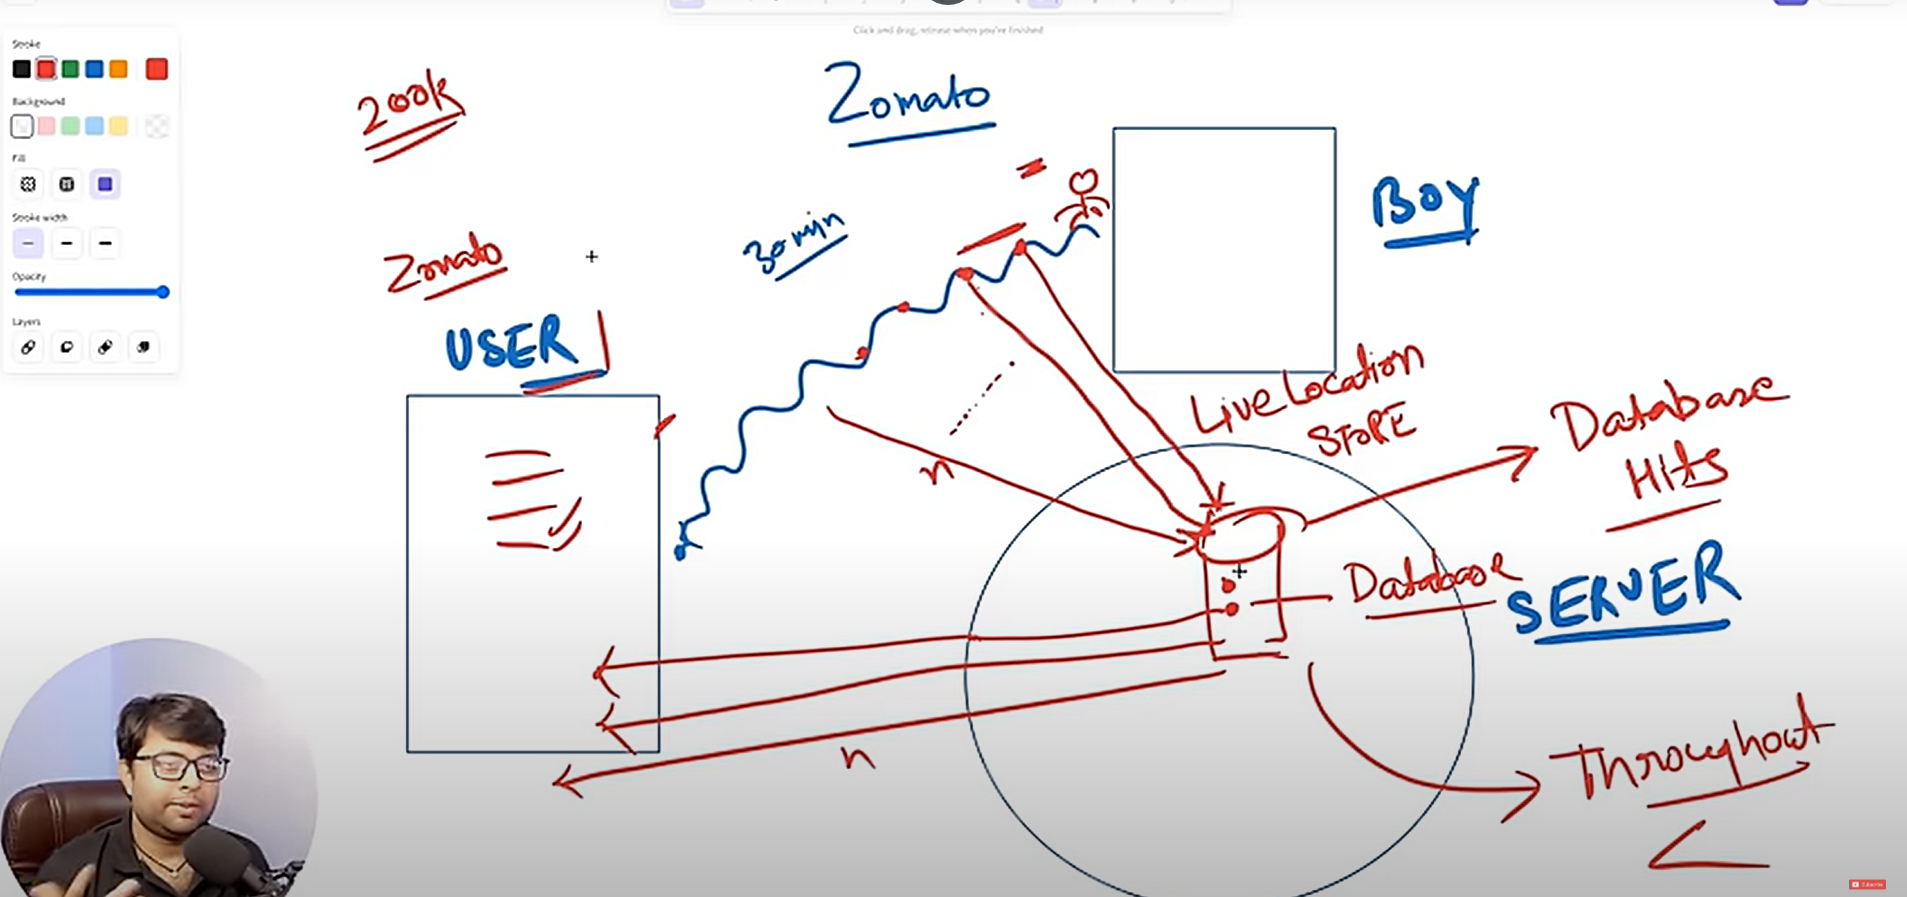 Click and drag, release when you're finished
Stroke
Background
Fill
Stroke width
Opacity
Layers
200k
Zomato
BOY
30 min
Zomato
USER
Live Location
STORE
Database
Hits
n
Database
SERVER
n
Throughout
Subscribe